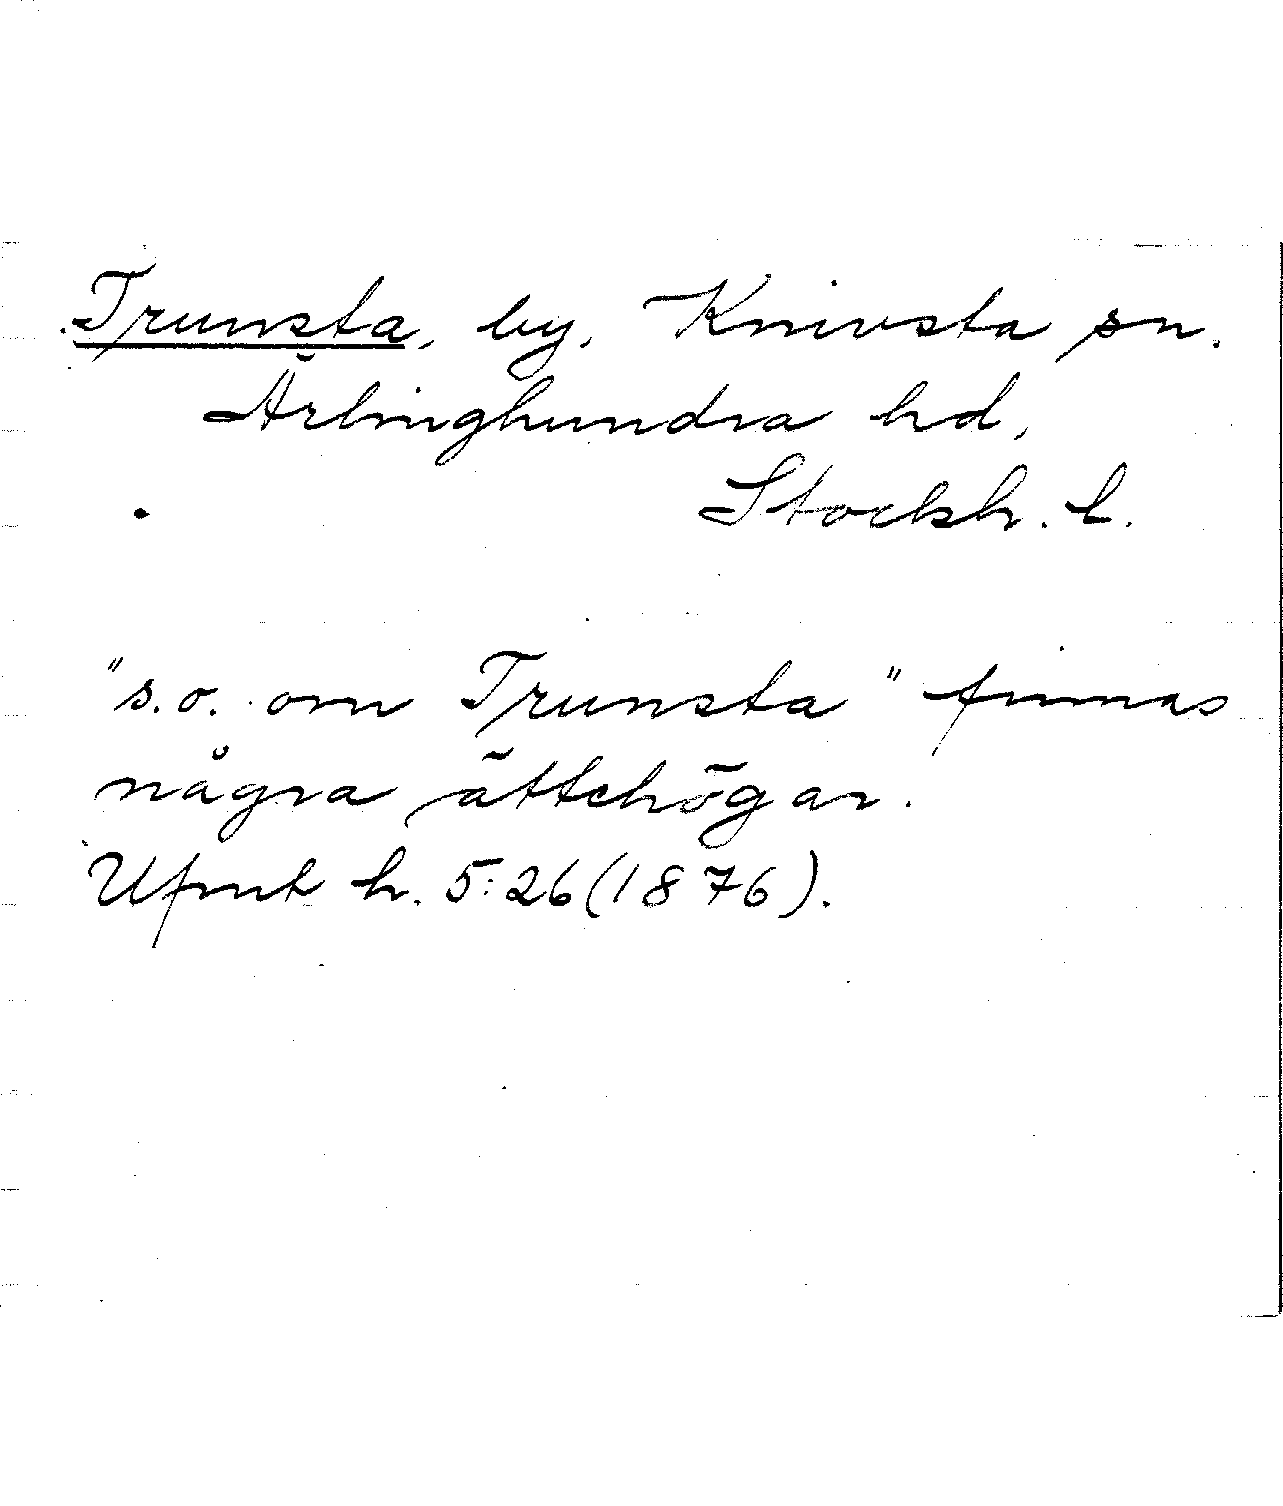 Trunsta, by, Knivsta sn.
Ärlinghundra hd,
Stockh. l.
"s.o. om Trunsta" finnas
några ättehögar.
Ufmt h. 5:26 (1876).